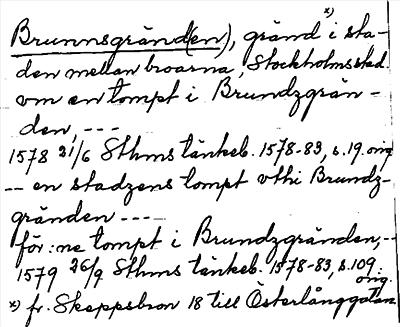 Brunnsgränd(en), gränd x) i sta-
den mellan broarna, Stockholms stad.
vm en tompt i Brundzgrän-
den, ---
1578 21/6 Sthms tänkeb. 1578-83, s. 19. orig
-- en stadzens tompt vthi Brundz-
gränden ----
för: ne tompt i Brundzgränden, --
1579 26/9 Sthms tänkeb. 1578-83, s. 109.
orig.
x) fr. Skeppsbron 18 till Österlånggatan